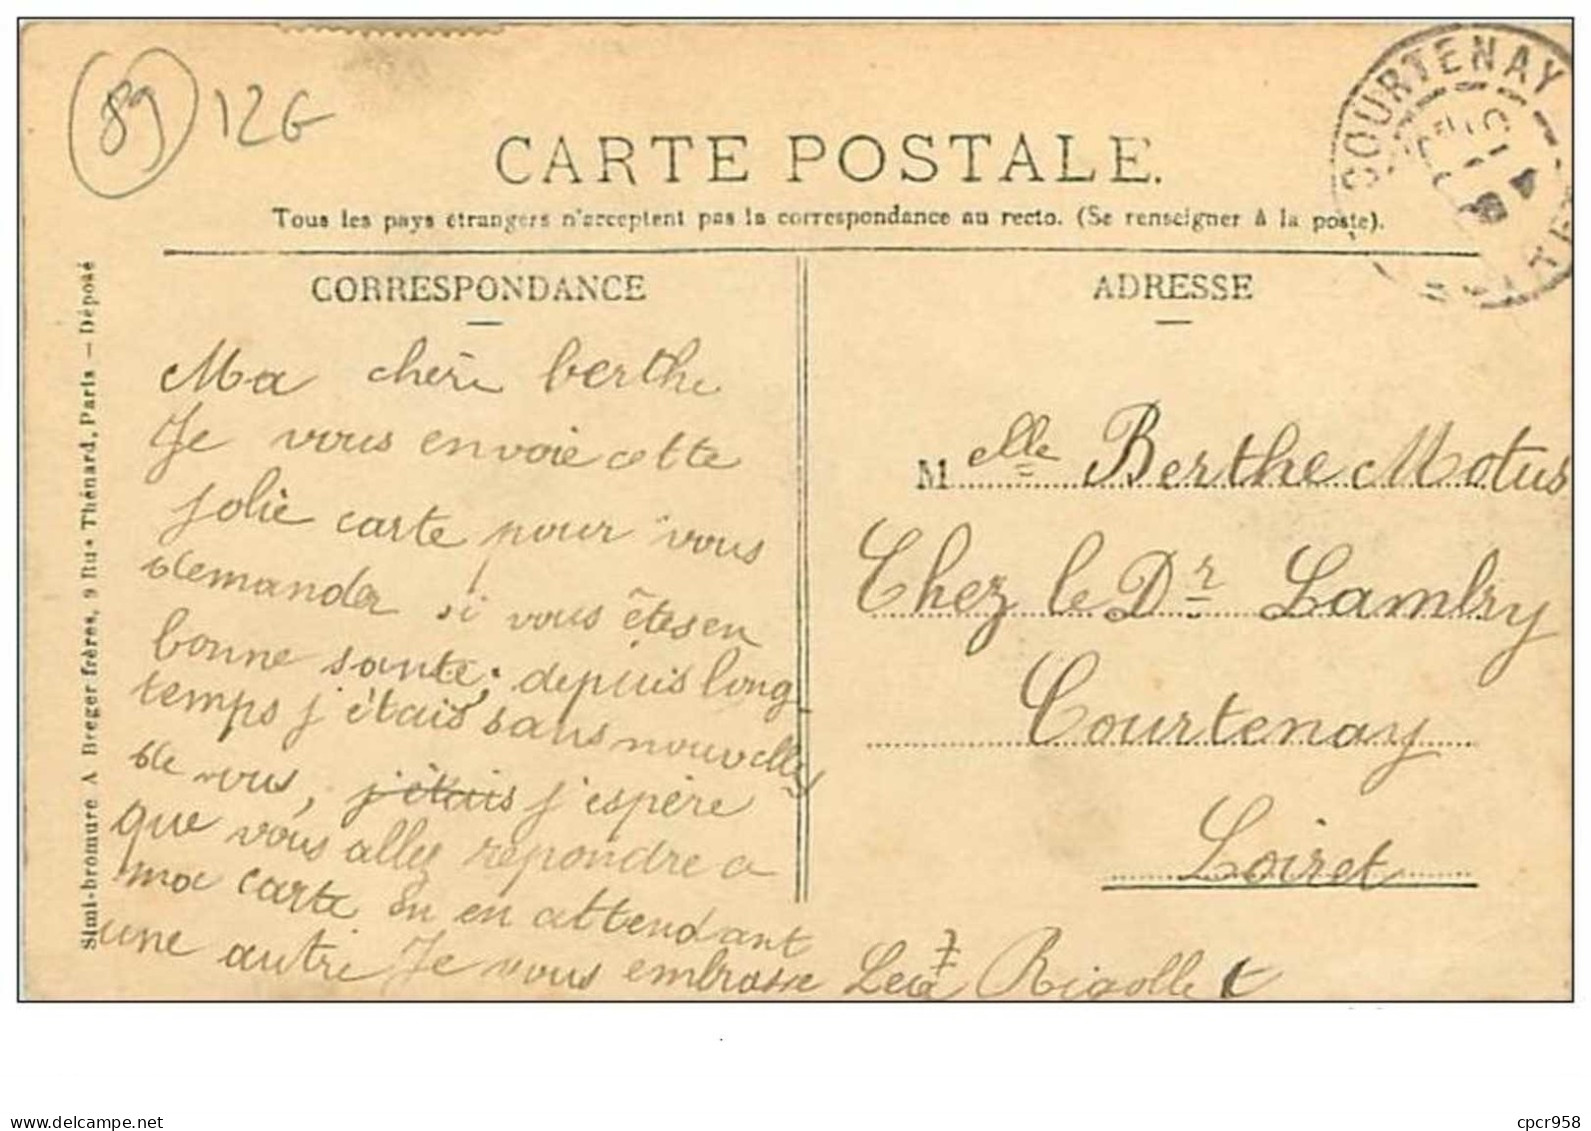 89 12G
COURTENAY
CARTE POSTALE.
Tous les pays étrangers n'acceptent pas la correspondance au recto. (Se renseigner à la poste).
CORRESPONDANCE
Ma chèri berthe
Je vous envoie cette
jolie carte pour vous
demander si vous êtes en
bonne santé; depuis long
temps j'étais sans nouvelles
de vous, j'étais j'espère
que vous allez repondre a
ma carte En en attendant
une autre Je vous embrasse Rigollet
ADRESSE
Melle Berthe Motus
Chez le Dr Lambry
Courtenay
Loiret
Simi-bromure A Breger frères, 9 Rue Thénard, Paris — Déposé
www.delcampe.net
cpcr958